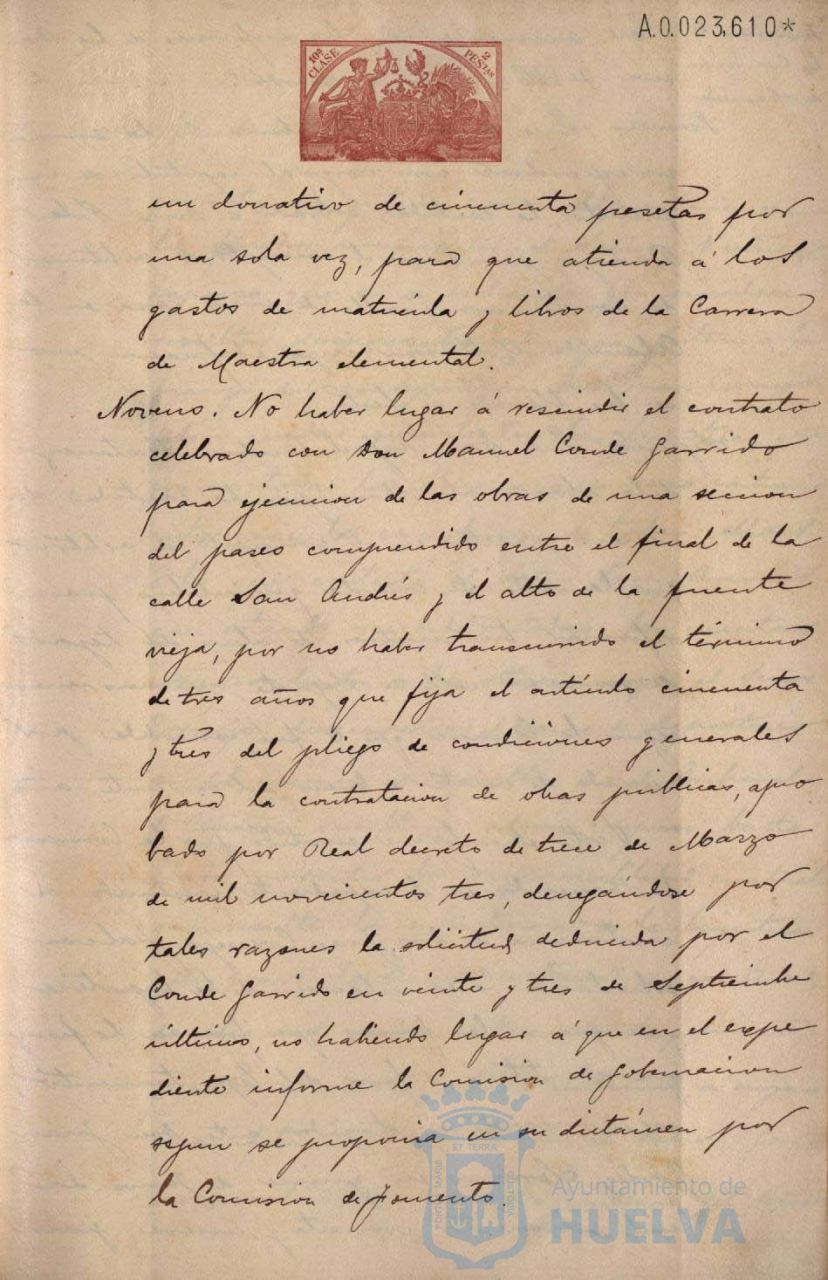 A.0.023,610*
10ª CLASE
2 PESTAS
un donativo de cincuenta pesetas por
una sola vez, para que atienda á los
gastos de matrícula y libros de la Carrera
de Maestra elemental.
Noveno. No haber lugar á rescindir el contrato
celebrado con Don Manuel Conde Garrido
para ejecucion de las obras de una seccion
del paseo comprendido entre el final de la
calle San Andrés y el alto de la fuente
vieja, por no haber transcurrido el término
de tres años que fija el artículo cincuenta
y tres del pliego de condiciones generales
para la contratacion de obras públicas, apro
bado por Real decreto de trece de Marzo
de mil novecientos tres, denegándose por
tales razones la solicitud deducida por el
Conde Garrido en veinte y tres de Septiembre
último, no habiendo lugar á que en el expe
diente informe la Comision de Gobernacion
segun se proponia en su dictámen por
la Comision de Fomento.
Ayuntamiento de
HUELVA